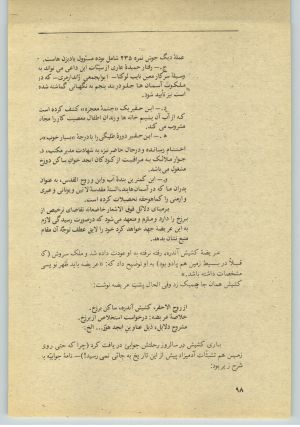 عملهٔ دیگ جوش نمره ۲۳۵ شامل بوده مسؤول بادبزن هاست.
ج.ـ رفتار حمیدهٔ عاری از سیّئات این داعی می تواند به
وسیلهٔ سرکار معین نایب لوکتا ـ ابوابجمعی ژاندارمری ـ که در
ملکوت آسمان ها جلو در بند پنجم به نگهبانی گماشته شده
است نیز تأیید شود.
د.ـ این حقیر یک «چشمهٔ معجزه» کشف کرده است
که از آب آن بشیم خانه ها و زندان اطفال معصیت کار را مجاناً
مشروب می کند.
هـ.ـ این حقیر دورهٔ طلبگی را با درجهٔ «بسیار خوب»
اختتام رسانده و در حال حاضر نیز، به شهادت مدیر مکتب، در
جوار ملائک به مراقبت از کودکان ابجد خوان ساکن دوزخ
مشغول می باشد.
و.ـ این کمترین بندهٔ آب و ابن و روح القدس، به عنوان
پدران ها که در آسمان هایند، السنهٔ مقدسهٔ لاتین و یونانی و عبری
و ارمنی را کماهوحقه تحصیلات کرده است.
بر مبنای دلائل فوق الاشعار خاضعانه تقاضای ترخیص از
برزخ را دارد و ملتزم و متعهد می شود که در صورت رسیدگی لازم
به این عریضه جهد خواهد کرد خود را لایق عطف توجّه آن مقام
منیع نشان بدهد.
عریضهٔ کشیش آندره، رفته نرفته به او عودت داده شد و ملک سروش (که
قبلاً در بسیط زمین هم یادو بود) به او توضیح داد که: «عریضه باید ظهرنویسی
مشخصات داشته باشد.»
کشیش همان جا چمبک زد و فی الحال پشت عریضه نوشت:
از روح الاحقر، کشیش آندره، ساکن برزخ.
خلاصهٔ عریضه: درخواست استخلاص از برزخ.
مشروح دلایل: ذیل عناوین ابجد هوّز... الخ.
باری کشیش در سالروز رحلتش جوابی دریافت کرد (چرا که حتی روی
زمین هم تشبّثات آدمیزاد پیش از این تاریخ به جائی نمی رسید!) ـ نامهٔ جوابیه به
شرح زیر بود:
۹۸